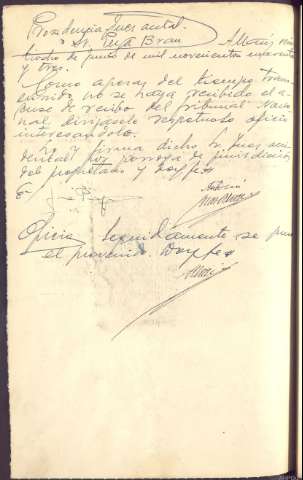 Providencia Juez acctal.
Sr. Peña Bran
Almería veinti
trocho de junio de mil novecientos cuarenta
y tres.
Como apesar del tiempo trans
currido no se haya recibido el a-
cuse de recibo del Tribunal Nacio
nal diríjasele respetuoso oficio
interesandolo.
Lo y firma dicho Sr. Juez acc
dental por prorroga de jurisdiccion
del propietario y doy fe
E/
Antonio
Oficio Seguidamente se pone
el prevenido. Doy fe